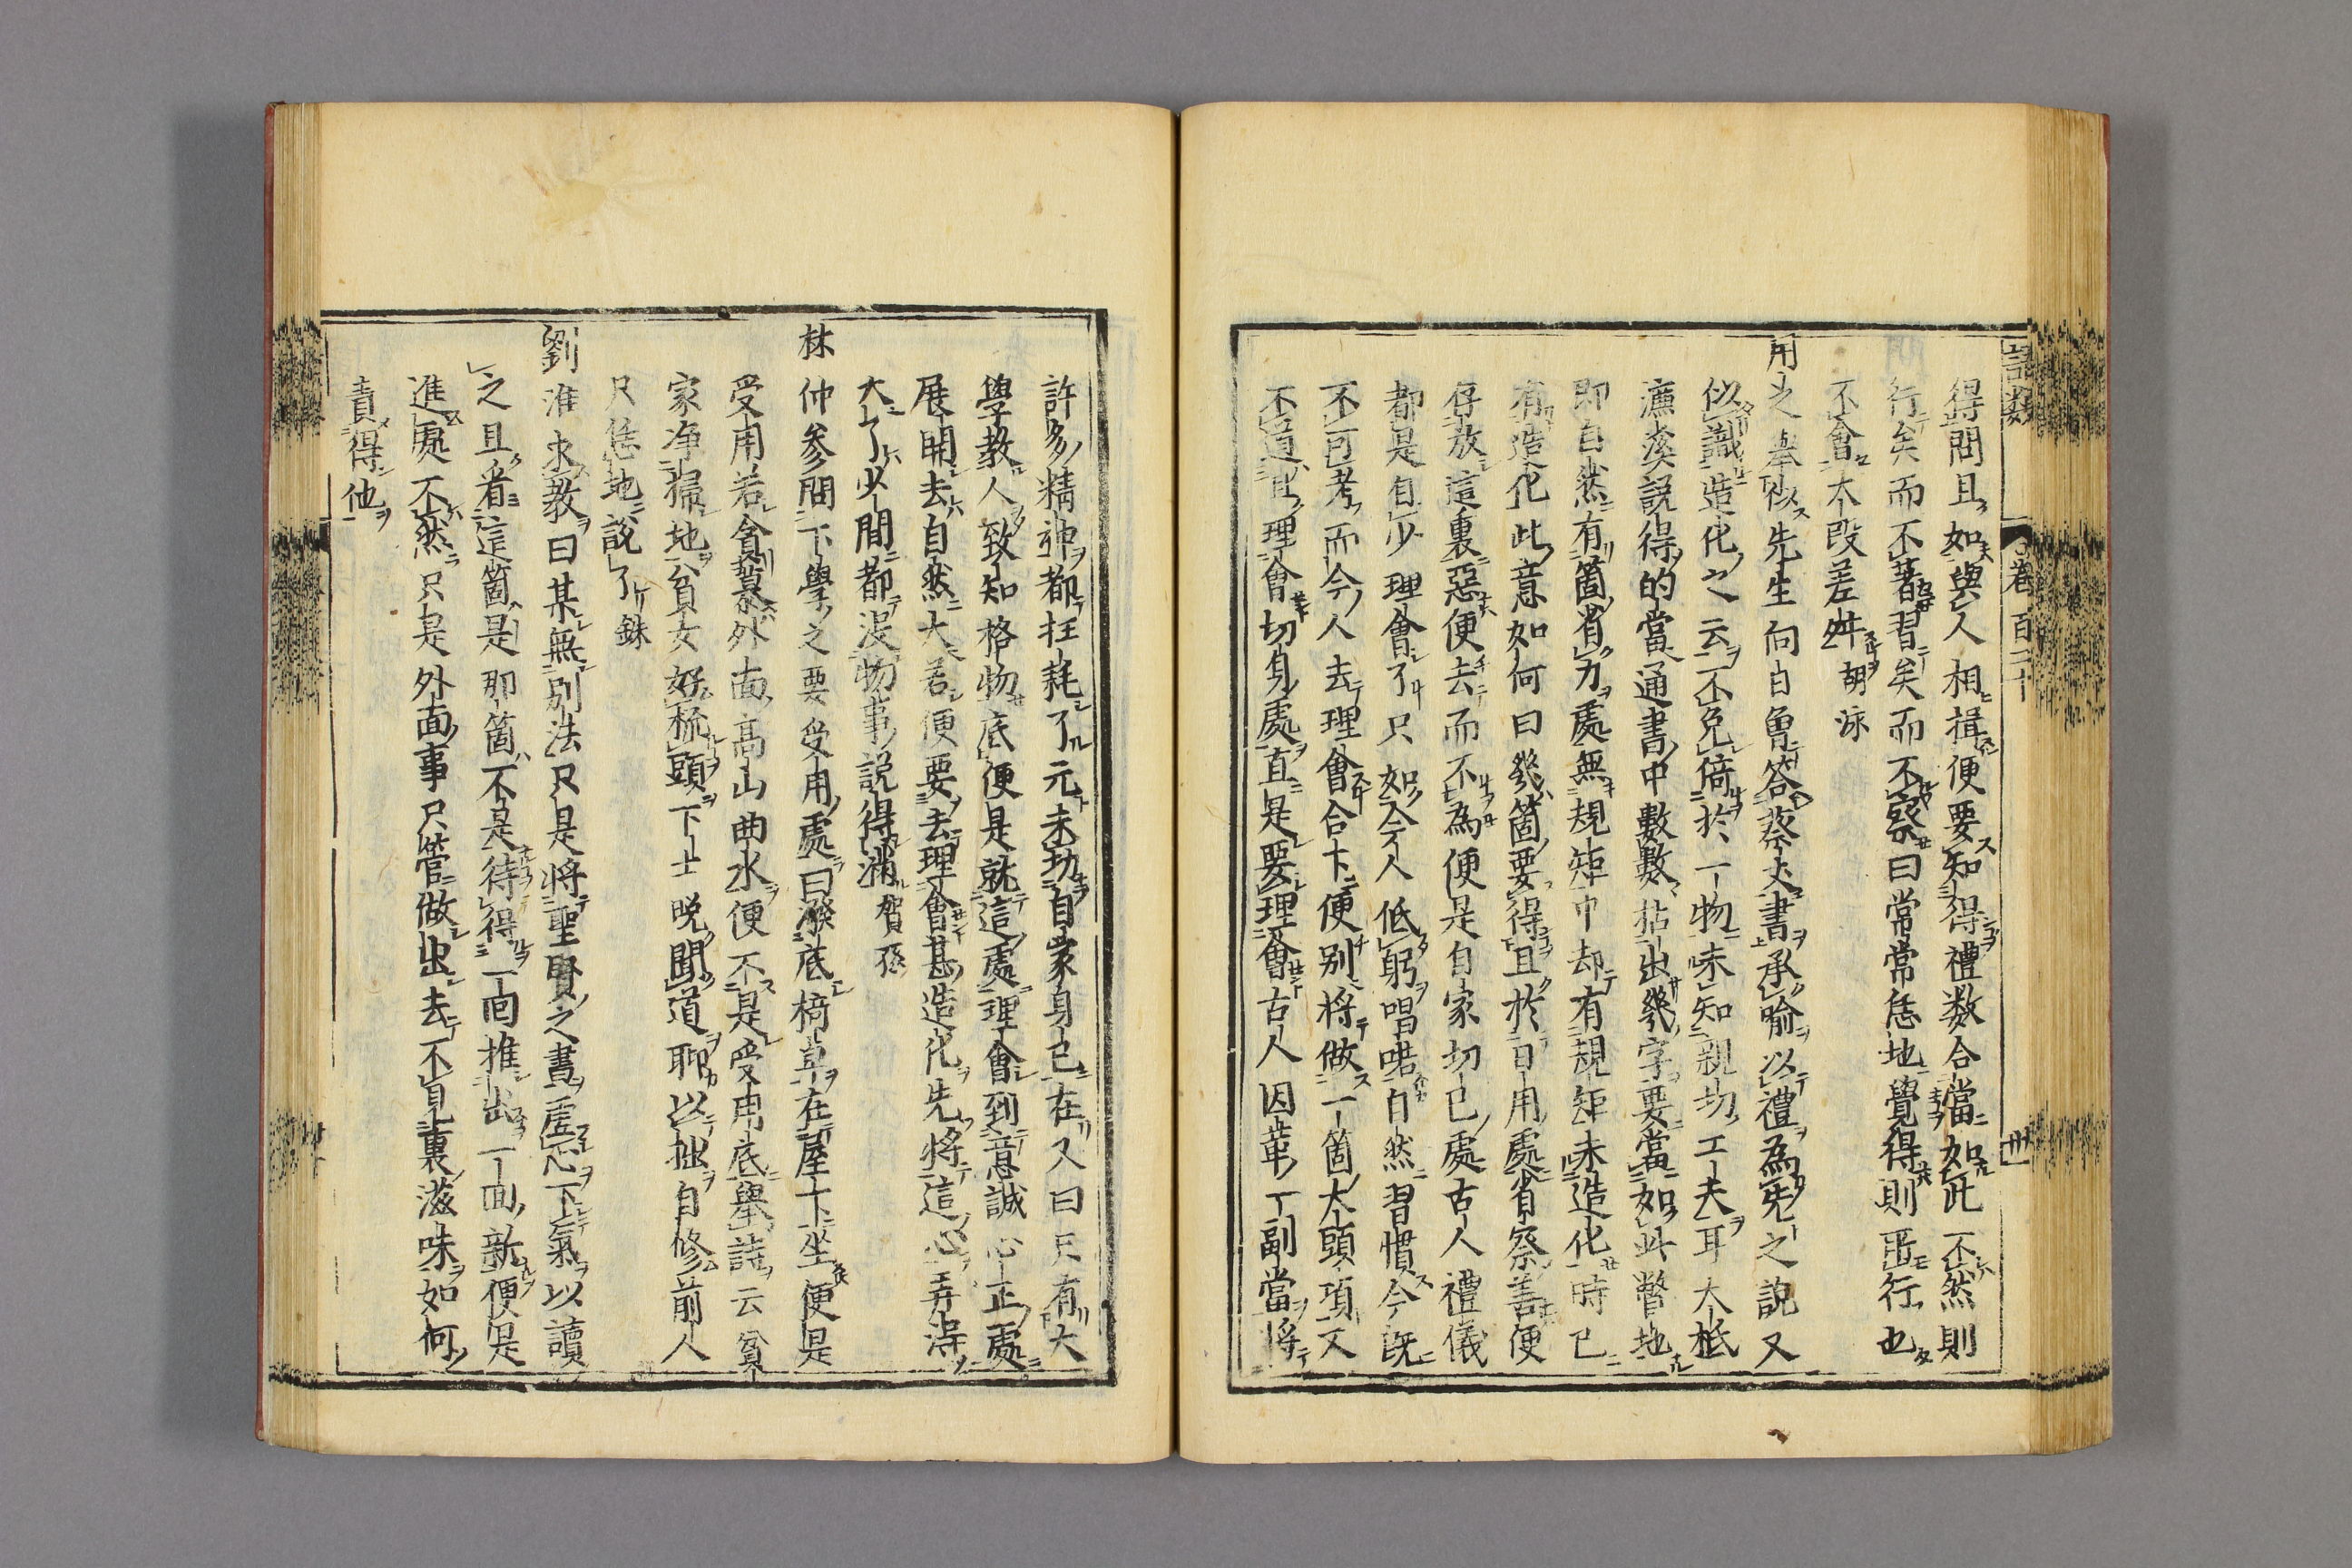 語類 卷百二十 卅一
得問且如與人相揖便要知得禮數合當如此不然則
行矣而不著習矣而不察曰常常恁地覺得則所行也
不會大段差舛胡泳
用之舉似先生向日曾答蔡丈書承喻以禮為先之說又
似識造化之云不免倚於一物未知親切工夫耳大抵
濂溪說得的當通書中數數拈出幾字要當如此瞥地
即自然有箇省力處無規矩中却有規矩未造化時已
有造化此意如何曰幾箇要得且於日用處省察善便
存放這裏惡便去而不為便是自家切已處古人禮儀
都是自少理會了只如今人低躬唱喏自然習慣今既
不可考而今人去理會合下便別將做一箇大頭項又
不道且理會切身處直是要理會古人因革一副當將
許多精神都枉耗了元未切自家身已在又曰只有大
學教人致知格物底便是就這處理會到意誠心正處
展開去自然大若便要去理會甚造化先將這心弄得
大了少間都沒物事說得滿賀孫
林仲參問下學之要受用處曰潑底椅卓在屋下坐便是
受用若貪慕外面高山曲水便不是受用底舉詩云貧
家淨掃地貧女好梳頭下士晚聞道聊以拙自修前人
只恁地說了銖
劉淮求教曰某無別法只是將聖賢之書虛心下氣以讀
之且看這箇是那箇不是待得一囘推出一面新便是
進處不然只是外面事只管做出去不見裏滋味如何
責得他